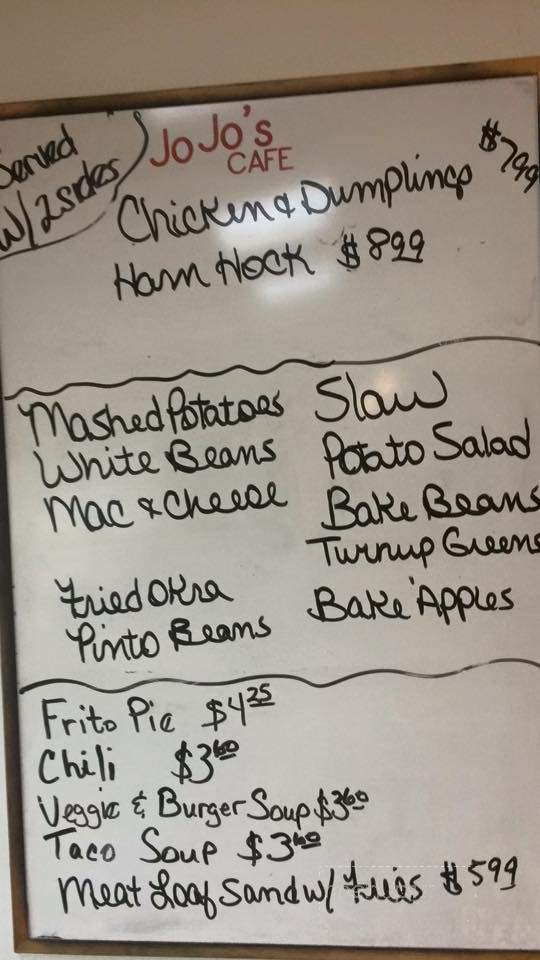 Served
W/2 sides
JoJo's
CAFE
Chicken & Dumplings $799
Ham Hock $899
Mashed Potatoes
White Beans
Mac & Cheese
Fried Okra
Pinto Beans
Slaw
Potato Salad
Bake Beans
Turnup Greens
Bake Apples
Frito Pie $4.25
Chili $3.60
Veggie & Burger Soup $3.60
Taco Soup $3.60
Meat Loaf Sand w/ Fries $599